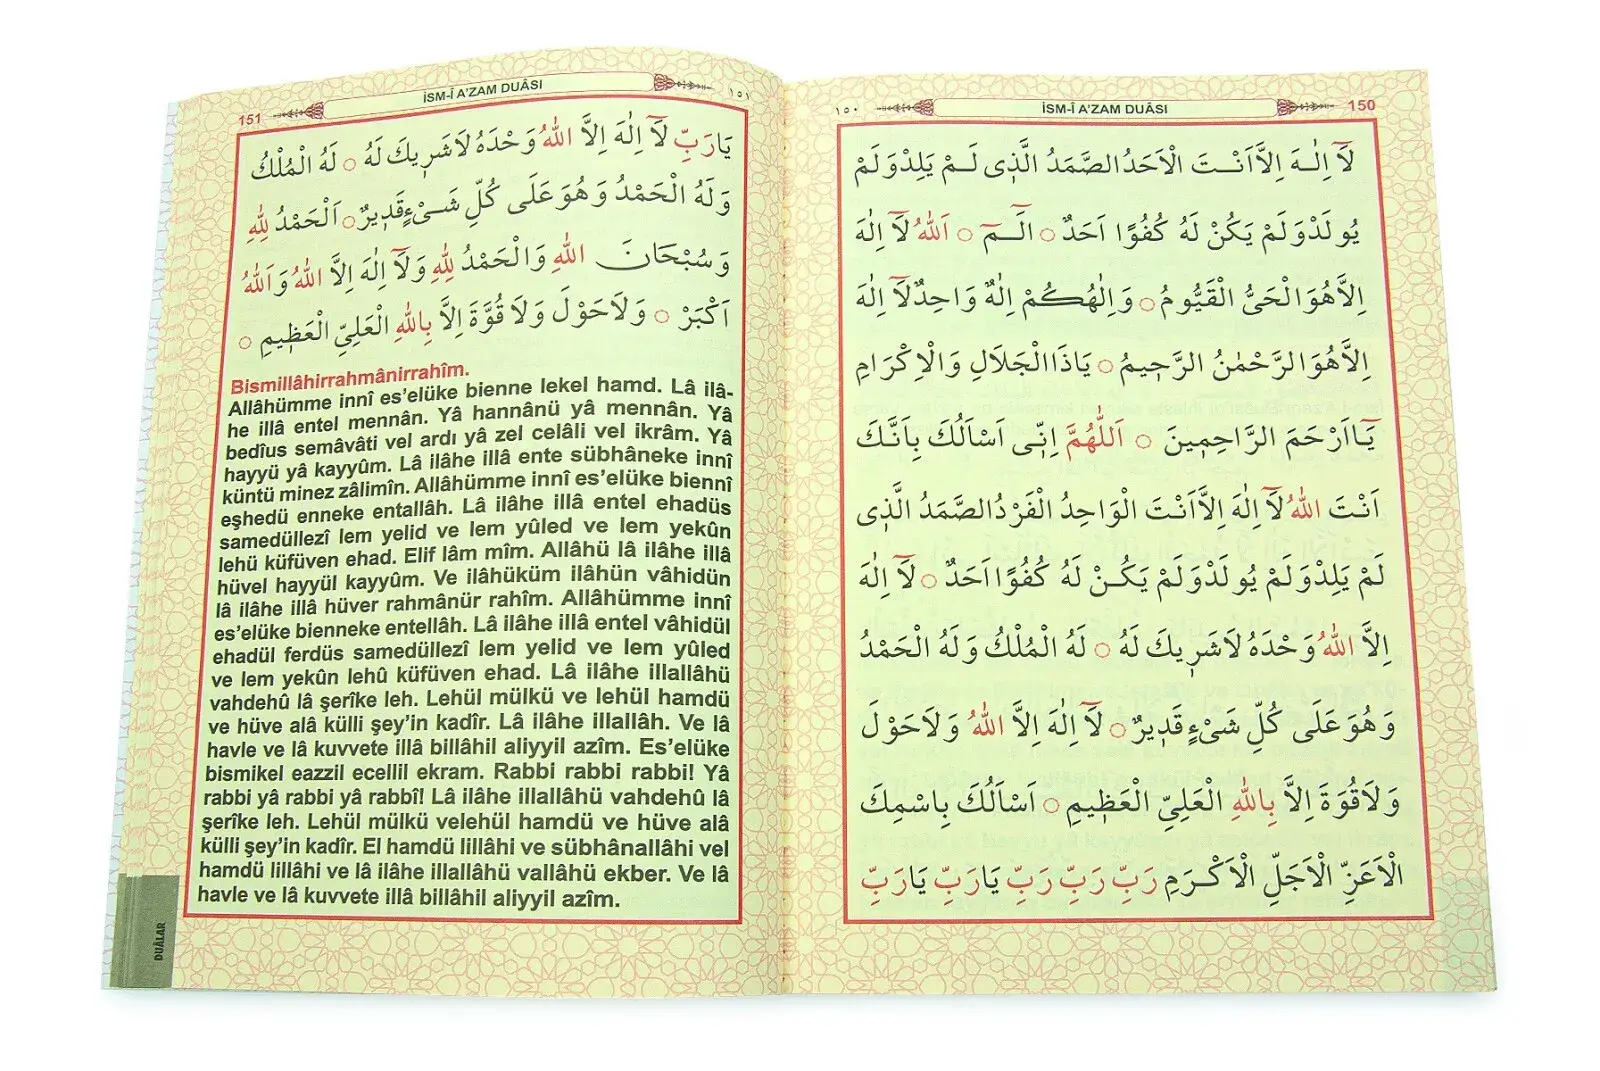 İSM-İ A'ZAM DUÂSI
150
١٥٠
لَٓا اِلٰـهَ اِلَّا اَنْـتَ الْاَحَدُ الصَّمَدُ الَّذ۪ى لَـمْ يَلِدْ وَلَمْ
يُولَدْ وَلَمْ يَكُنْ لَهُ كُفُوًا اَحَدٌ ○ الٓـمٓ ○ اَللّٰهُ لَٓا اِلٰهَ
اِلَّا هُوَ الْحَىُّ الْقَيُّومُ ○ وَاِلٰهُكُمْ اِلٰهٌ وَاحِدٌ لَٓا اِلٰهَ
اِلَّا هُوَ الرَّحْمٰنُ الرَّح۪يمُ ○ يَاذَا الْجَلَالِ وَالْاِكْرَامِ
يَٓا اَرْحَمَ الرَّاحِم۪ينَ ○ اَللّٰهُمَّ اِنّ۪ى اَسْاَلُكَ بِاَنَّكَ
اَنْتَ اللّٰهُ لَٓا اِلٰهَ اِلَّا اَنْتَ الْوَاحِدُ الْفَرْدُ الصَّمَدُ الَّذ۪ى
لَمْ يَلِدْ وَلَمْ يُولَدْ وَلَمْ يَكُـنْ لَهُ كُفُوًا اَحَدٌ ○ لَٓا اِلٰهَ
اِلَّا اللّٰهُ وَحْدَهُ لَا شَر۪يكَ لَهُ ○ لَهُ الْمُلْكُ وَلَهُ الْحَمْدُ
وَهُوَ عَلٰى كُلِّ شَىْءٍ قَد۪يرٌ ○ لَٓا اِلٰهَ اِلَّا اللّٰهُ وَلَا حَوْلَ
وَلَا قُوَّةَ اِلَّا بِاللّٰهِ الْعَلِىِّ الْعَظ۪يمِ ○ اَسْاَلُكَ بِاسْمِكَ
الْاَعَزِّ الْاَجَلِّ الْاَكْـرَمِ رَبِّ رَبِّ رَبِّ يَارَبِّ يَارَبِّ
151
İSM-İ A'ZAM DUÂSI
١٥١
يَارَبِّ لَٓا اِلٰهَ اِلَّا اللّٰهُ وَحْدَهُ لَا شَر۪يكَ لَهُ ○ لَهُ الْمُلْكُ
وَلَهُ الْحَمْدُ وَهُوَ عَلٰى كُلِّ شَـىْءٍ قَد۪يرٌ ○ اَلْحَمْدُ لِلّٰهِ
وَسُبْحَانَ اللّٰهِ وَالْحَمْدُ لِلّٰهِ وَلَٓا اِلٰهَ اِلَّا اللّٰهُ وَاَللّٰهُ
اَكْبَرْ ○ وَلَا حَوْلَ وَلَا قُوَّةَ اِلَّا بِاللّٰهِ الْعَلِىِّ الْعَظ۪يمِ ○
Bismillâhirrahmânirrahîm.
Allâhümme innî es'elüke bienne lekel hamd. Lâ ilâ-
he illâ entel mennân. Yâ hannânü yâ mennân. Yâ
bedîus semâvâti vel ardı yâ zel celâli vel ikrâm. Yâ
hayyü yâ kayyûm. Lâ ilâhe illâ ente sübhâneke innî
küntü minez zâlimîn. Allâhümme innî es'elüke biennî
eşhedü enneke entallâh. Lâ ilâhe illâ entel ehadüs
samedüllezî lem yelid ve lem yûled ve lem yekûn
lehü küfüven ehad. Elif lâm mîm. Allâhü lâ ilâhe illâ
hüvel hayyül kayyûm. Ve ilâhüküm ilâhün vâhidün
lâ ilâhe illâ hüver rahmânür rahîm. Allâhümme innî
es'elüke bienneke entellâh. Lâ ilâhe illâ entel vâhidül
ehadül ferdüs samedüllezî lem yelid ve lem yûled
ve lem yekûn lehû küfüven ehad. Lâ ilâhe illallâhü
vahdehû lâ şerîke leh. Lehül mülkü ve lehül hamdü
ve hüve alâ külli şey'in kadîr. Lâ ilâhe illallâh. Ve lâ
havle ve lâ kuvvete illâ billâhil aliyyil azîm. Es'elüke
bismikel eazzil ecellil ekram. Rabbi rabbi rabbi! Yâ
rabbi yâ rabbi yâ rabbî! Lâ ilâhe illallâhü vahdehû lâ
şerîke leh. Lehül mülkü velehül hamdü ve hüve alâ
külli şey'in kadîr. El hamdü lillâhi ve sübhânallâhi vel
hamdü lillâhi ve lâ ilâhe illallâhü vallâhü ekber. Ve lâ
havle ve lâ kuvvete illâ billâhil aliyyil azîm.
DUÂLAR